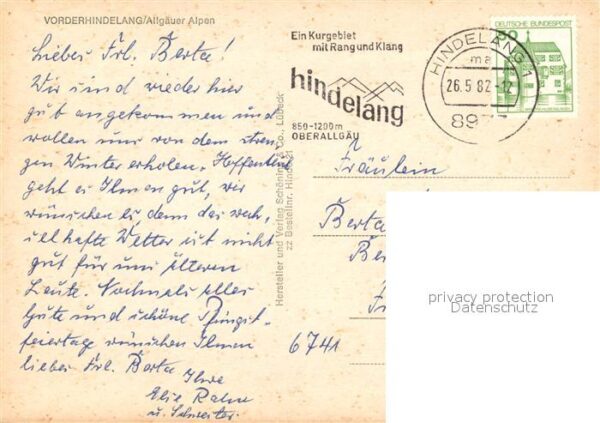 VORDERHINDELANG/Allgäuer Alpen
Liebes Frl. Berta!
Wir sind wieder hier
gut angekommen und
wollen uns von dem stren-
gen Winter erholen. Hoffentlich
geht es Ihnen gut, wir
wünschen es, denn das wech-
selhafte Wetter ist nicht
gut für uns älteren
Leute. Nochmals alles
Gute und schöne Pfingst-
feiertage wünschen Ihnen
liebes Frl. Berta
Ihre
u. Schwester.
Hersteller und Verlag Schöning & Co., Lübeck
zz Bestellnr. Hind
Ein Kurgebiet
mit Rang und Klang
hindelang
850-1200 m
OBERALLGÄU
HINDELANG 1
ma
26.5.82-12
897
DEUTSCHE BUNDESPOST
Fräulein
Berta
6741
privacy protection
Datenschutz